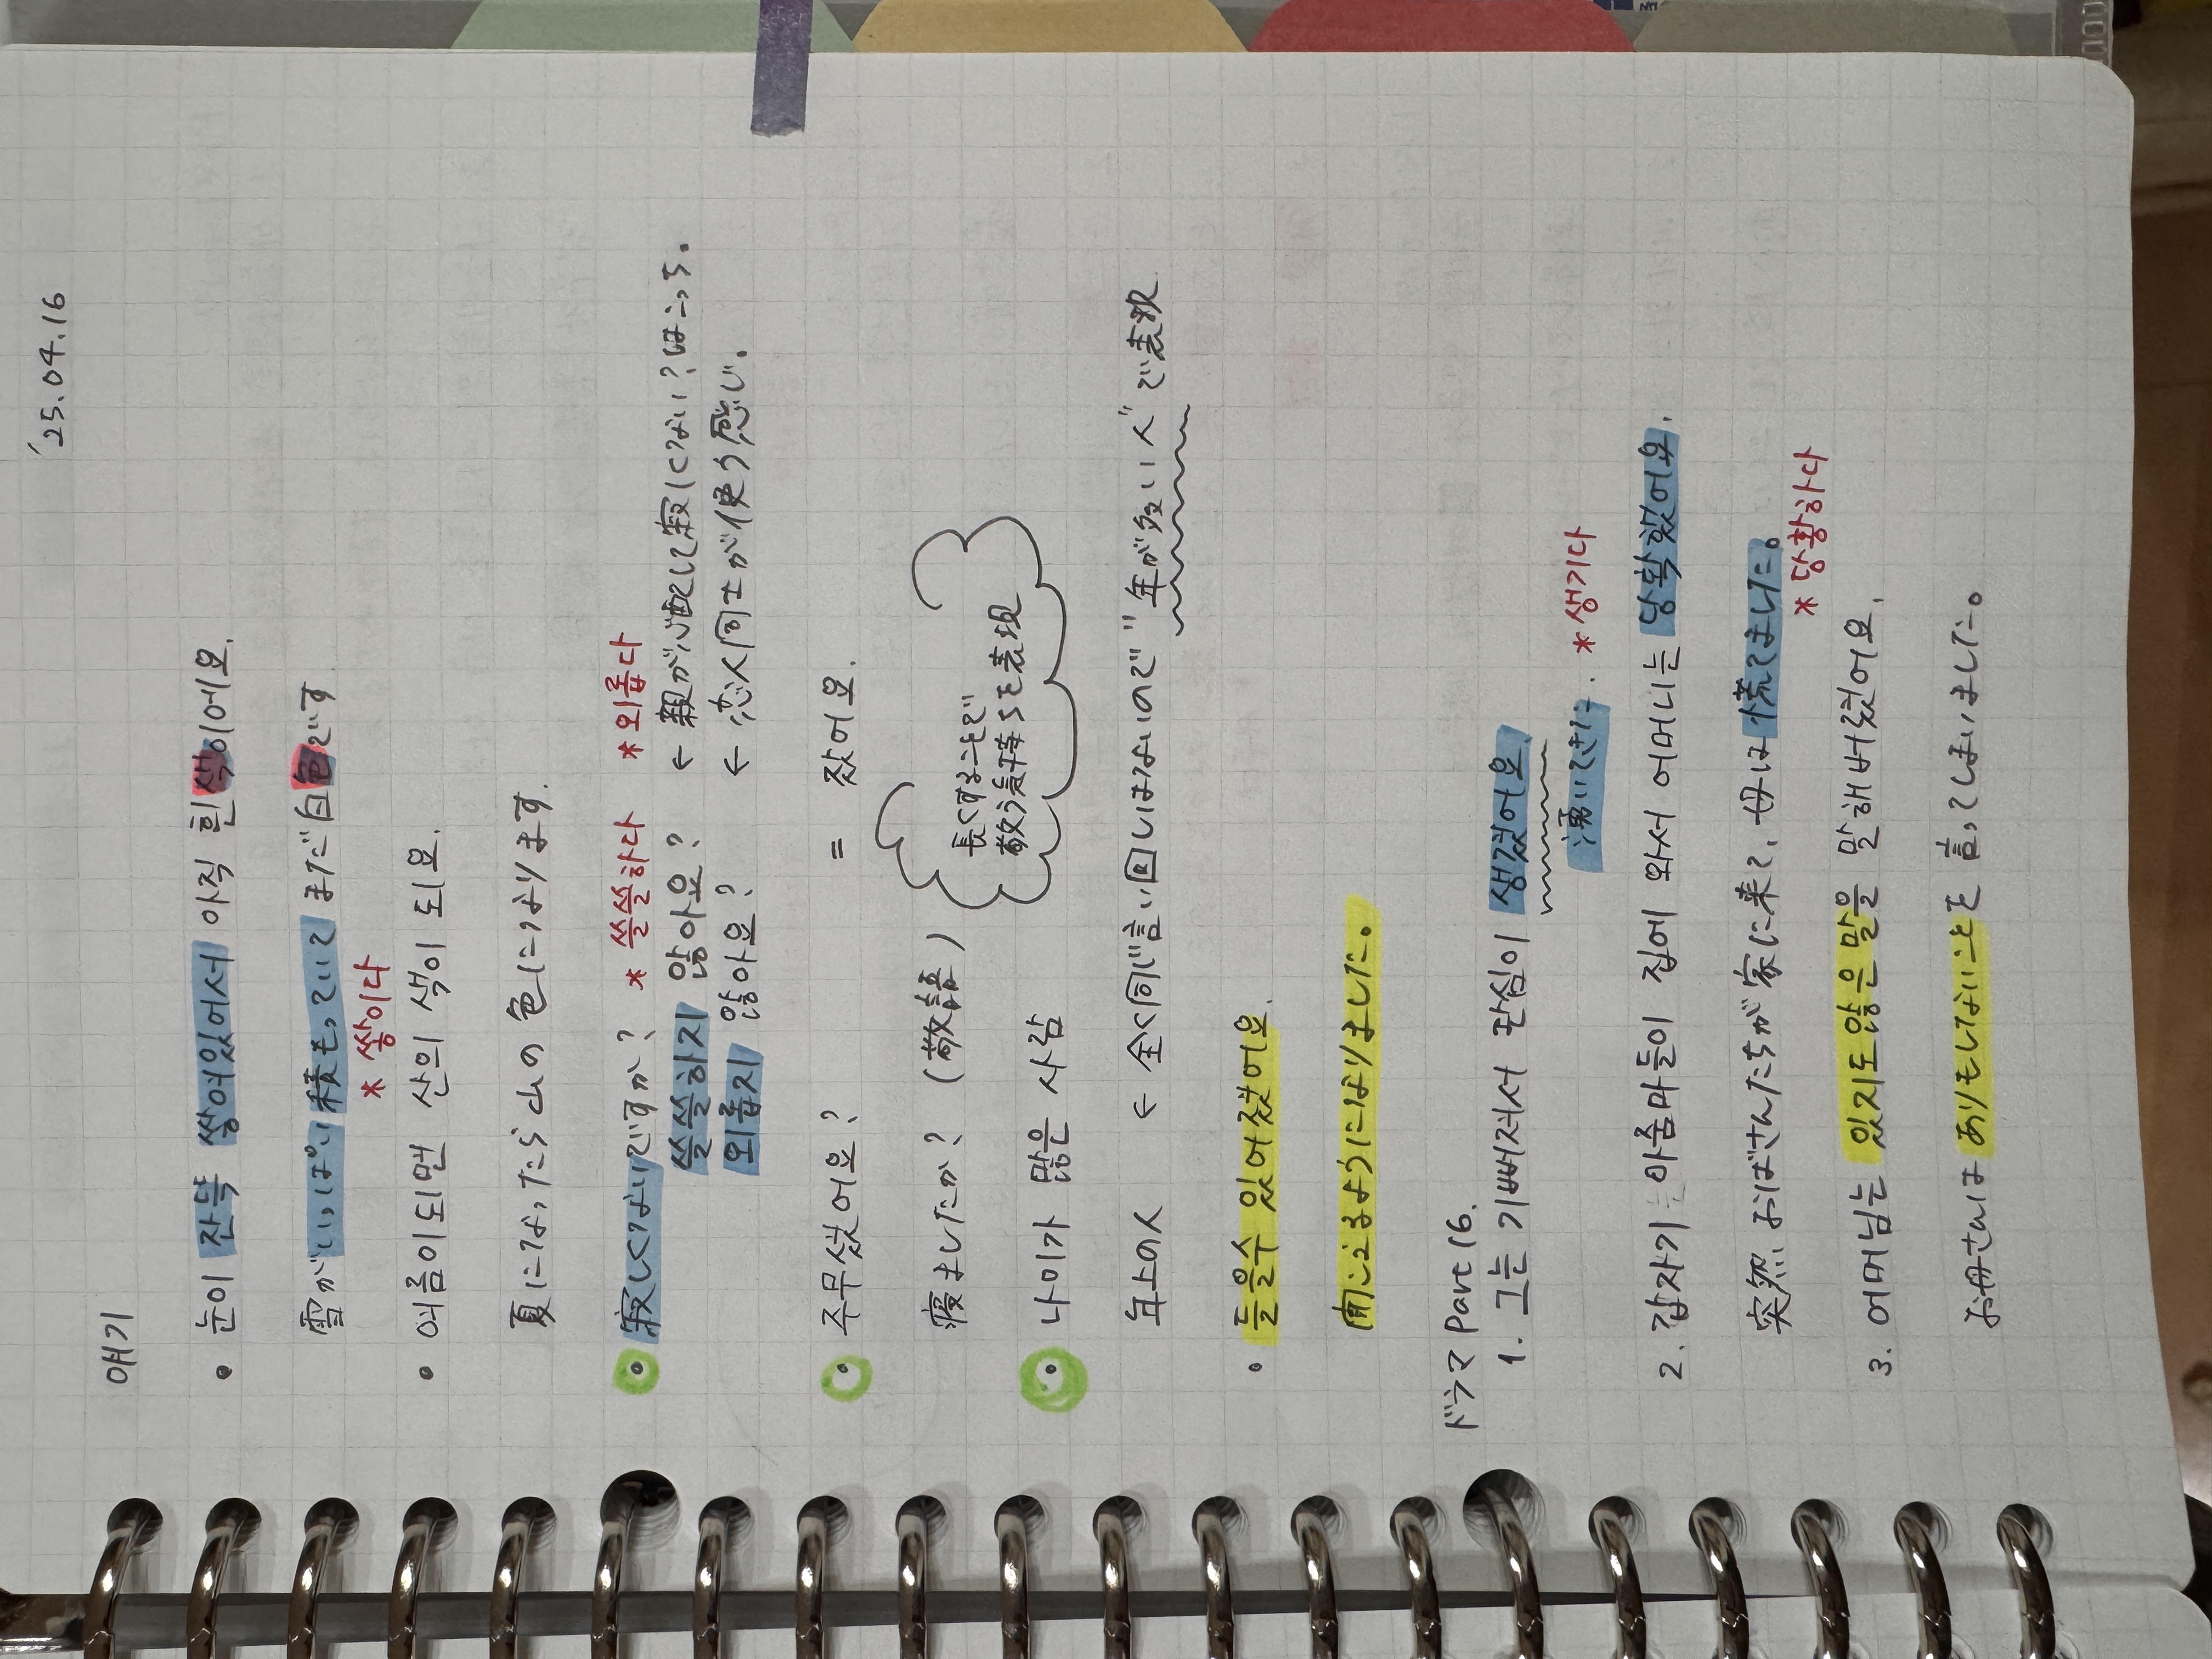 '25.04.16
얘기
• 눈이 잔뜩 쌓여있어서 아직 흰색이에요.
雪がいっぱい積もっていて まだ白色です
* 쌓이다
• 여름이 되면 산의 색이 되요.
夏になったら山の色になります.
• 寂しくないですか? * 쓸쓸하다 * 외롭다
쓸쓸하지 않아요? ← 親が心配して寂しくない?はこっち。
외롭지 않아요? ← 恋人同士が使う感じ。
• 주무셨어요? = 잤어요.
寝ましたか? (敬語)
長くすることで
敬う気持ちを表現
• 나이가 많은 사람
年上の人 ← 全く同じ言い回しはないので "年が多い人" で表現
• 들을수 있어졌어요.
聞こえるようになりました。
ドラマ Part 16.
1. 그는 기뻐져서 관심이 생겼어요.
湧いてきた. * 생기다
2. 갑자기 아줌마들이 집에 와서 어머니는 당황했어요.
突然おばさんたちが家に来て、母は慌てました。
* 당황하다
3. 어머님는 있지도않은 말을 말해버렸어요.
お母さんは ありもしないことを 言ってしまいました。